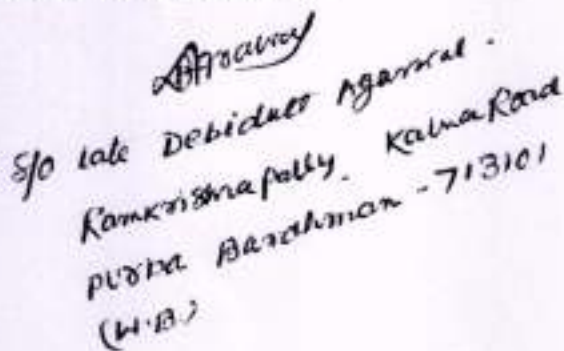 S/o late Debidutt Agarwal.
Ramkrishnapally. Kalna Road
Purba Bardhman - 713101
(W.B.)